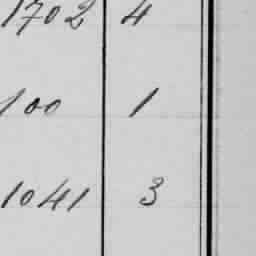 1702 4
100 1
1041 3